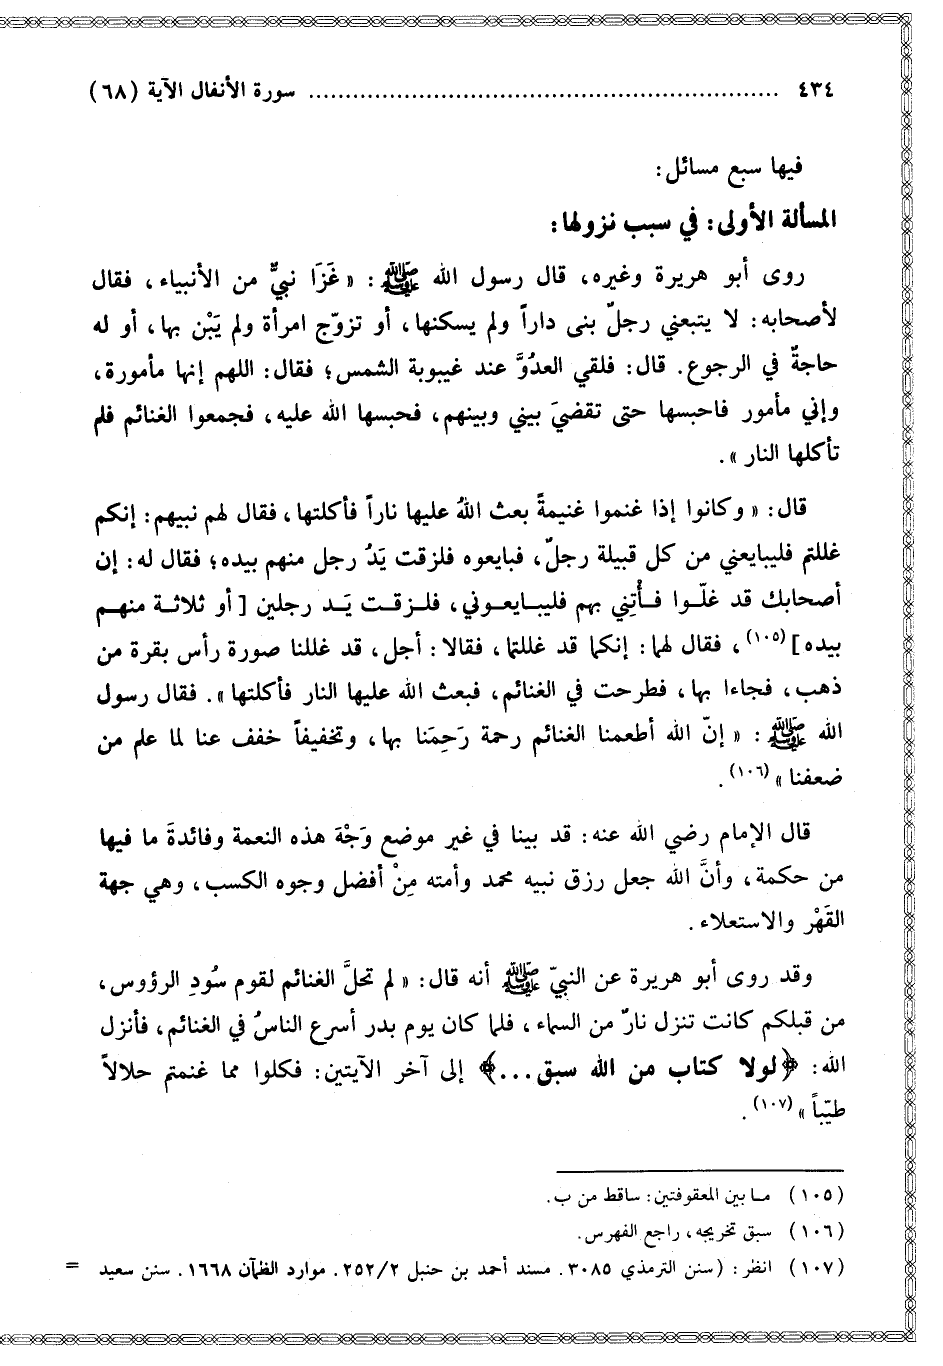 ٤٣٤ ........................................................... سورة الأنفال الآية (٦٨)
فيها سبع مسائل:
المسألة الأولى: في سبب نزولها:
روى أبو هريرة وغيره، قال رسول الله ﷺ: «غَزَا نبيٌّ من الأنبياء، فقال
لأصحابه: لا يتبعني رجلٌ بنى داراً ولم يسكنها، أو تزوّج امرأة ولم يَبْنِ بها، أو له
حاجةٌ في الرجوع. قال: فلقي العدوَّ عند غيبوبة الشمس؛ فقال: اللهم إنها مأمورة،
وإني مأمور فاحبسها حتى تقضيَ بيني وبينهم، فحبسها الله عليه، فجمعوا الغنائم فلم
تأكلها النار».
قال: «وكانوا إذا غنموا غنيمةً بعث اللهُ عليها ناراً فأكلتها، فقال لهم نبيهم: إنكم
غللتم فليبايعني من كل قبيلة رجلٌ، فبايعوه فلزقت يَدُ رجل منهم بيده؛ فقال له: إن
أصحابك قد غلّوا فأْتِني بهم فليبايعوني، فلزقت يَد رجلين [أو ثلاثة منهم
بيده](١٠٥)، فقال لهما: إنكما قد غللتما، فقالا: أجل، قد غللنا صورة رأس بقرة من
ذهب، فجاءا بها، فطرحت في الغنائم، فبعث الله عليها النار فأكلتها». فقال رسول
الله ﷺ: «إنّ الله أطعمنا الغنائم رحمة رَحِمَنا بها، وتخفيفاً خفف عنا لما علم من
ضعفنا»(١٠٦).
قال الإمام رضي الله عنه: قد بينا في غير موضع وَجْهَ هذه النعمة وفائدةَ ما فيها
من حكمة، وأنَّ الله جعل رزق نبيه محمد وأمته مِنْ أفضل وجوه الكسب، وهي جهة
القَهْر والاستعلاء.
وقد روى أبو هريرة عن النبيّ ﷺ أنه قال: «لم تحلَّ الغنائم لقوم سُودِ الرؤوس،
من قبلكم كانت تنزل نارٌ من السماء، فلما كان يوم بدر أسرع الناسُ في الغنائم، فأنزل
الله: ﴿لولا كتاب من الله سبق...﴾ إلى آخر الآيتين: فكلوا مما غنمتم حلالاً
طيّباً»(١٠٧).
(١٠٥) ما بين المعقوفتين: ساقط من ب.
(١٠٦) سبق تخريجه، راجع الفهرس.
(١٠٧) انظر: (سنن الترمذي ٣٠٨٥. مسند أحمد بن حنبل ٢٥٢/٢. موارد الظمآن ١٦٦٨. سنن سعيد =